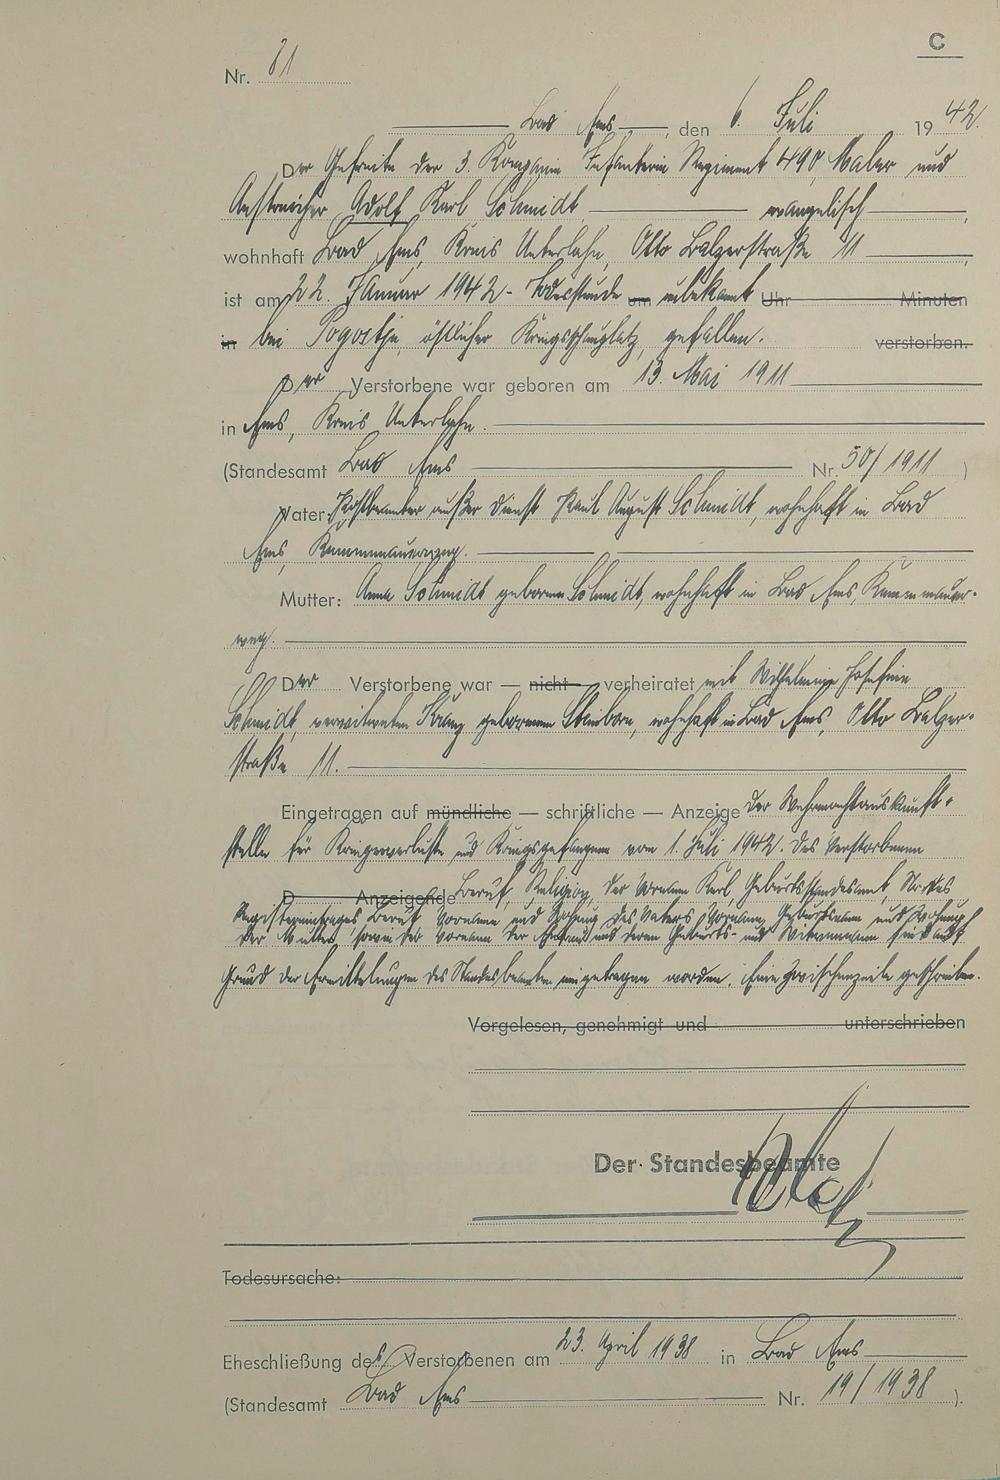 C
Nr. 81
Bad Ems, den 6. Juli 1942.
Der Gefreite der 3. Kompanie Infanterie Regiment 490, Maler und
Anstreicher Adolf Karl Schmidt evangelisch,
wohnhaft Bad Ems, Kreis Unterlahn, Otto Balzerstraße 11,
ist am 22. Januar 1942 - Todesstunde um unbekannt Uhr Minuten
in bei Pogostje, östlicher Kriegsschauplatz, gefallen. verstorben.
Der Verstorbene war geboren am 13. Mai 1911
in Ems, Kreis Unterlahn.
(Standesamt Bad Ems Nr. 50/1911)
Vater: Postbeamter außer Dienst Karl August Schmidt, wohnhaft in Bad
Ems,
Mutter: Anna Schmidt geborene Schmidt, wohnhaft in Bad Ems,
weg.
Der Verstorbene war — nicht — verheiratet mit Wilhelmine Josefine
Schmidt, verwitweten geborenen wohnhaft in Bad Ems, Otto Balzer-
straße 11.
Eingetragen auf mündliche — schriftliche — Anzeige der Wehrmachtauskunft-
stelle für Kriegerverluste und Kriegsgefangene vom 1. Juli 1942. Des Verstorbenen
D Anzeigende Beruf, Religion, der Vorname Karl, Geburtsstandesamt, Nr. des
Registereintrages, Beruf, Vorname und Wohnung des Vaters, Vorname, Geburtsname und Wohnung
der Mutter, sowie der Vorname der Ehefrau und deren Geburts- und Witwenname sind auf
Grund der Ermittelungen des Standesbeamten eingetragen worden. Eine Zwischenzeile geschrieben.
Vorgelesen, genehmigt und unterschrieben
Der Standesbeamte
Todesursache:
Eheschließung des Verstorbenen am 23. April 1938 in Bad Ems
(Standesamt Bad Ems Nr. 19/1938).